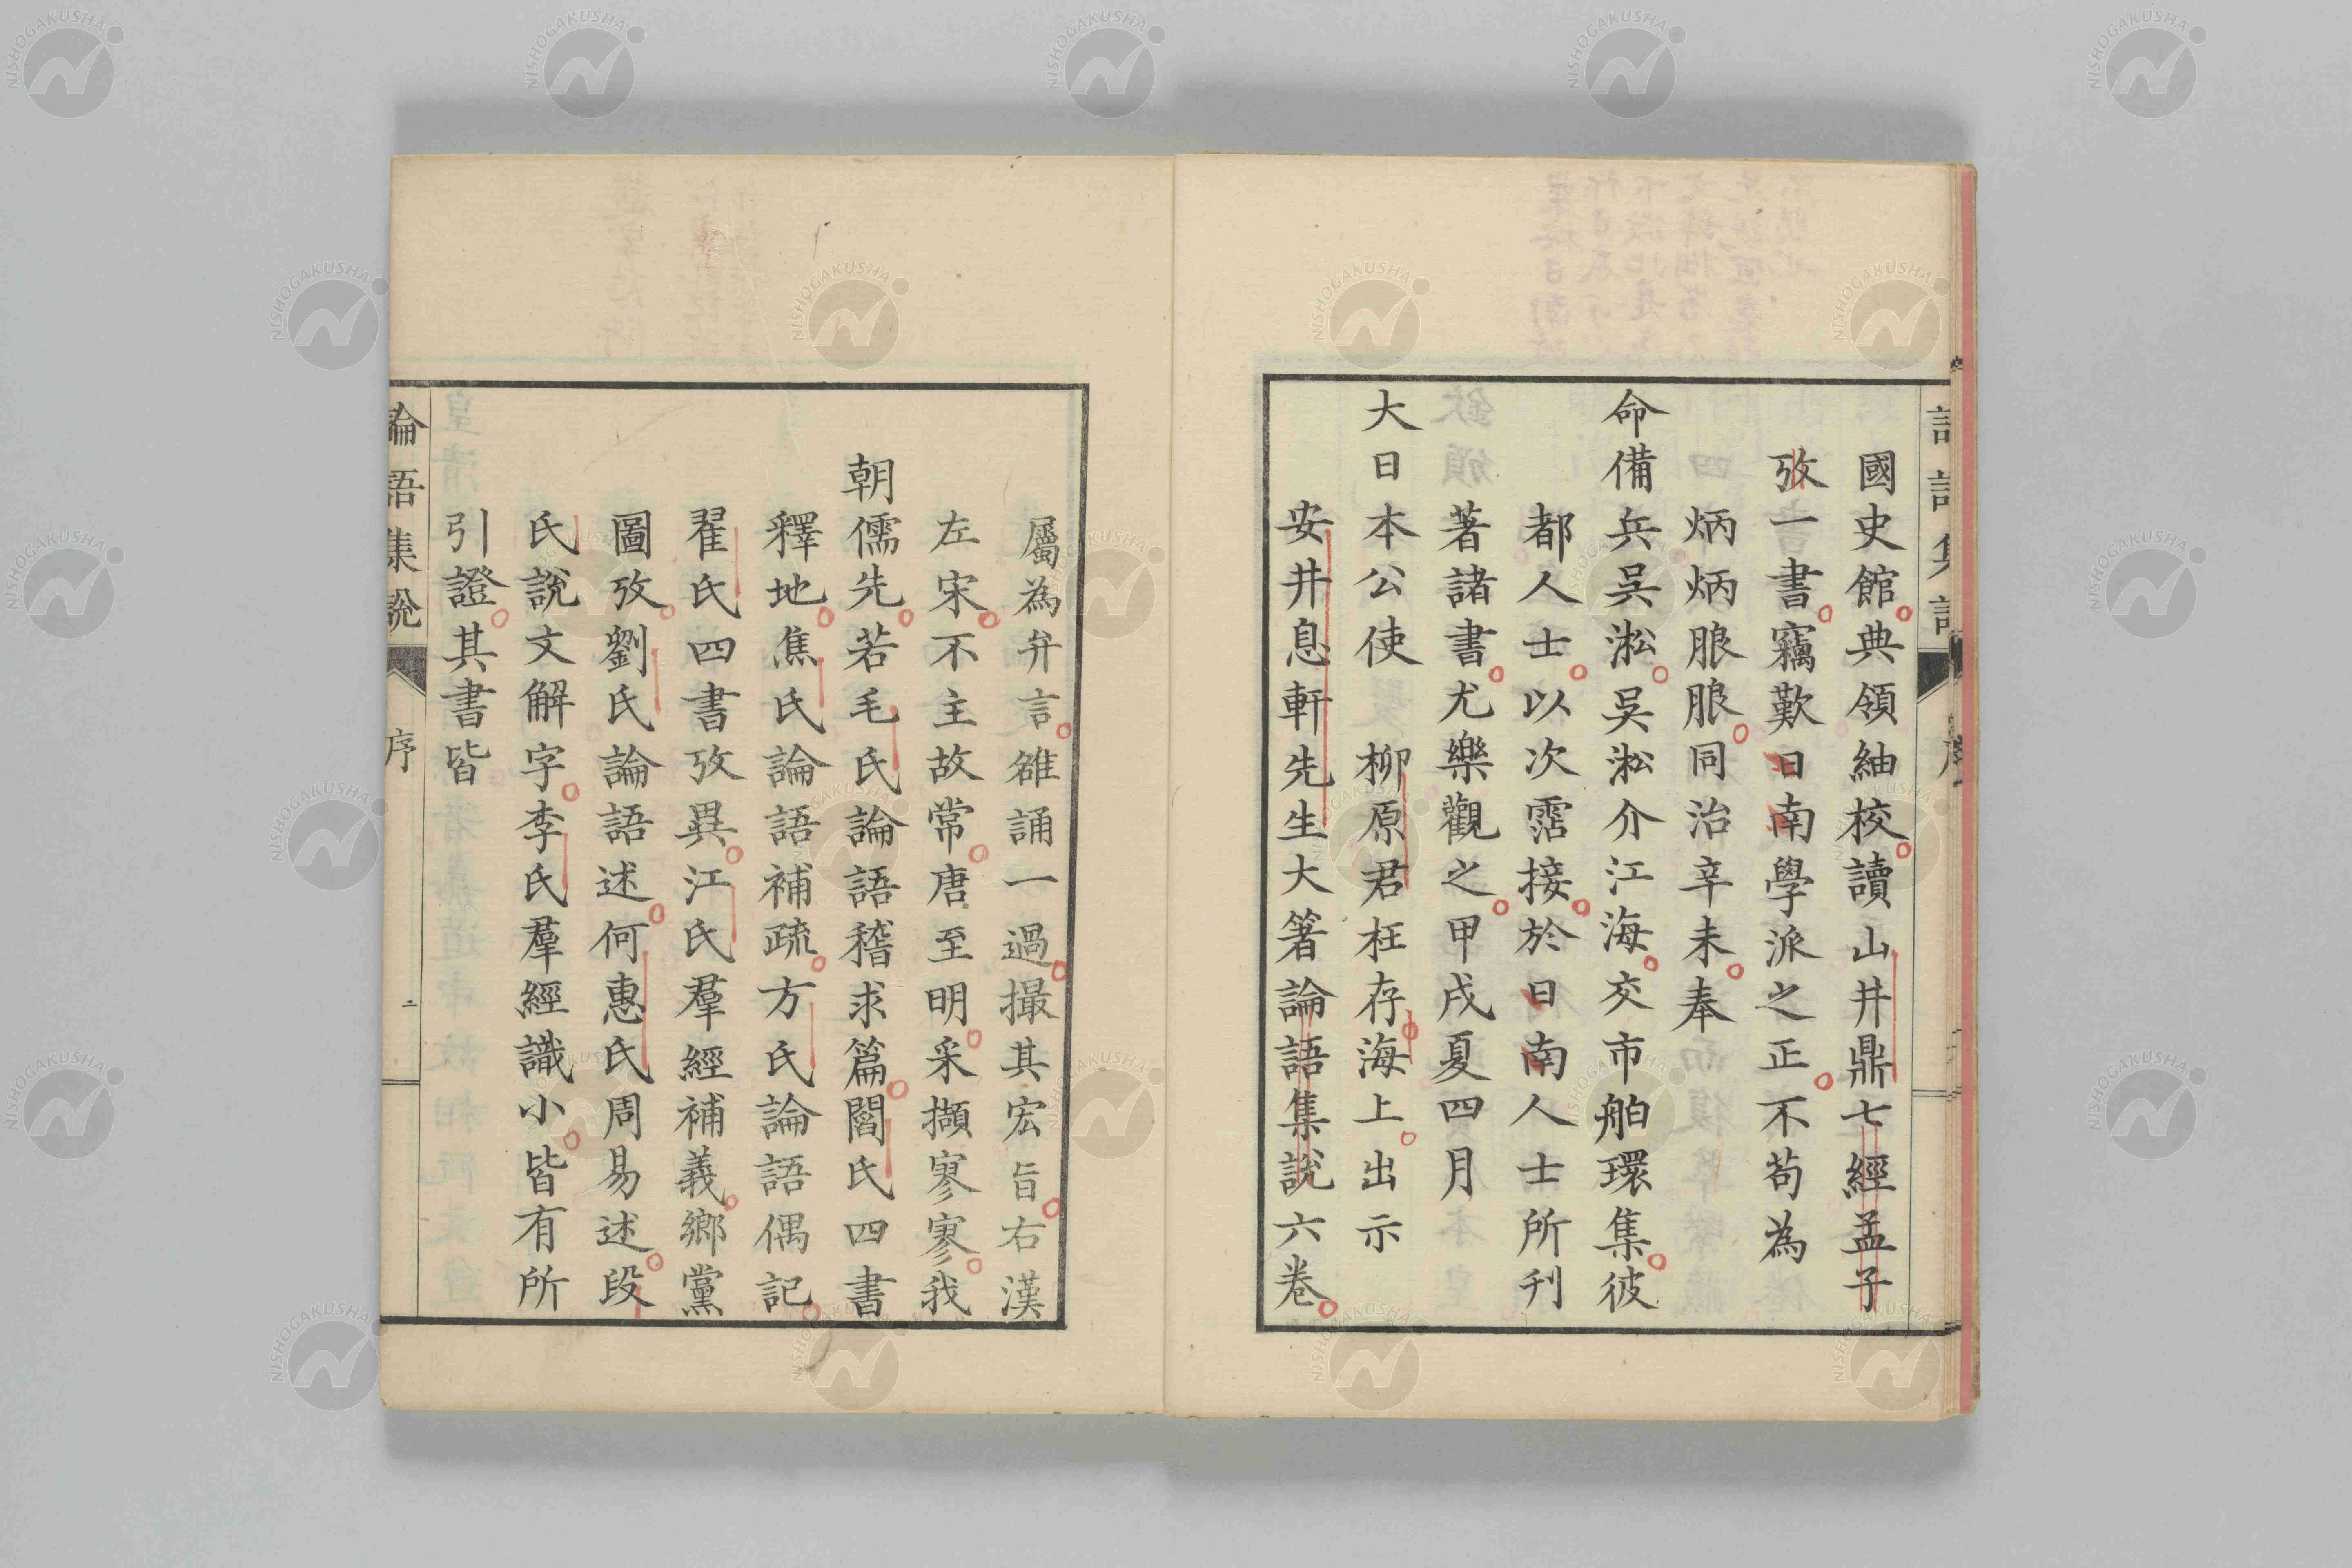 國史館典領紬校讀山井鼎七經孟子
攷一書竊歎日南學派之正不苟為
炳炳朖朖同治辛未奉
命備兵吳淞吳淞介江海交市舶環集彼
都人士以次霑接於日南人士所刊
著諸書尤樂觀之甲戌夏四月
大日本公使 柳原君枉存海上出示
安井息軒先生大箸論語集說六卷
屬為弁言雒誦一過撮其宏旨右漢
左宋不主故常唐至明采擷寥寥我
朝儒先若毛氏論語稽求篇閻氏四書
釋地焦氏論語補疏方氏論語偶記
翟氏四書攷異江氏羣經補義鄉黨
圖攷劉氏論語述何惠氏周易述段
氏說文解字李氏羣經識小皆有所
引證其書皆
論語集說 序 二
NISHOGAKUSHA